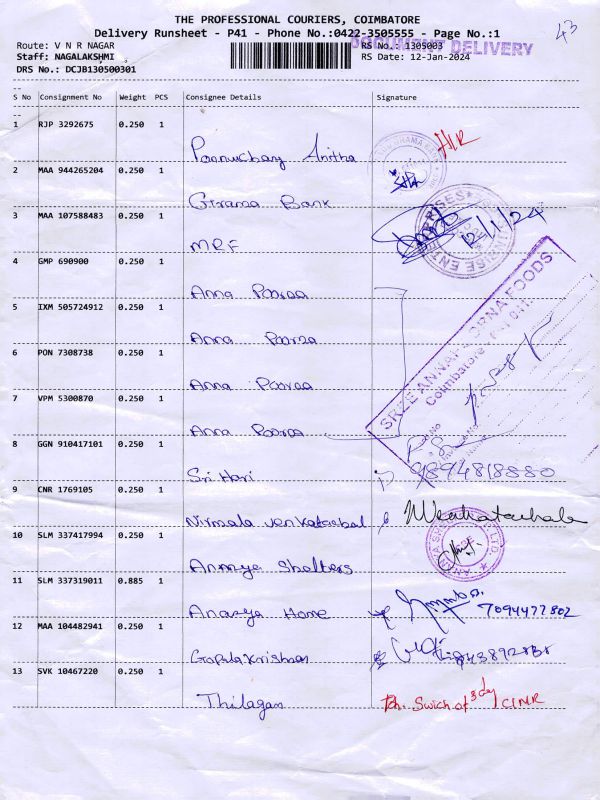 THE PROFESSIONAL COURIERS, COIMBATORE
Delivery Runsheet - P41 - Phone No.:0422-3505555 - Page No.:1
43
Route: V N R NAGAR
RS No.: 1305003
DOCUMENT DELIVERY
Staff: NAGALAKSHMI
RS Date: 12-Jan-2024
DRS No.: DCJB130500301
S No Consignment No Weight PCS Consignee Details Signature
1 RJP 3292675 0.250 1
Anitha
2 MAA 944265204 0.250 1
Grama Bank
3 MAA 107588483 0.250 1
MRF
12/1/24
4 GMP 690900 0.250 1
Anna Pooraa
5 IXM 505724912 0.250 1
Anna Poorza
6 PON 7308738 0.250 1
Anna Pooraa
7 VPM 5300870 0.250 1
Anna Poorna
SREE ANNAPOORNA FOODS
Coimbatore
8 GGN 910417101 0.250 1
Sri Hari
9894818880
9 CNR 1769105 0.250 1
Nirmala Venkatachal
Venkatachala
10 SLM 337417994 0.250 1
Ananya Shelters
11 SLM 337319011 0.885 1
Ananya Home
7094477802
12 MAA 104482941 0.250 1
Gopalakrishnan
13 SVK 10467220 0.250 1
Thilagan
Ph. Swich of